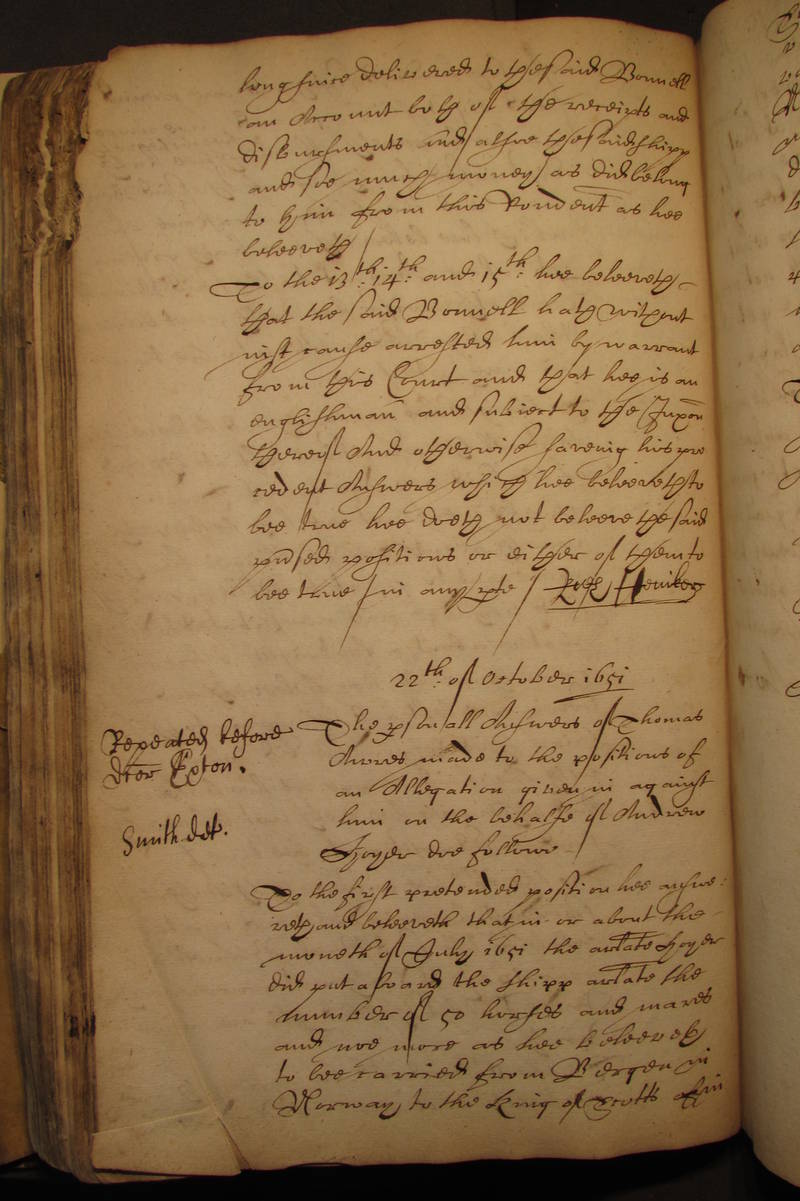 long since delivered to the said Bonnell
an Account both of the receipts and
disbursments and alsoe the said shipp
and soe much money as did belong
to him from this Rondent as hee
beleeveth
To the 13th: 14th: and 15th hee beleeveth
that the said Bonnell hath without
iust cause arrested him by warrant
from this Court and that hee is an
englishman and subiect to the
thereof And otherwise saveing his pre
cedent Answers which hee beleeveth to
bee true hee doeth not beleeve the said
prsed positions or either of them to
bee true in any pte / Heniken
22th: of October 1651
The psonall Answers of Thomas
made to the positions of
an Allegation given in against
him on the behalfe of Andrew
doe followe
Repeated before
dtor Exton.
Smith det.
To the first pretended position hee answe:
reth and beleeveth that in or about the
moneth of July 1651 the arlate
did put aboard the shipp arlate the
number of 50 horses and mares
and noe more as hee beleeveth
to bee carried from Bergen in
Norway to the King of Scotts